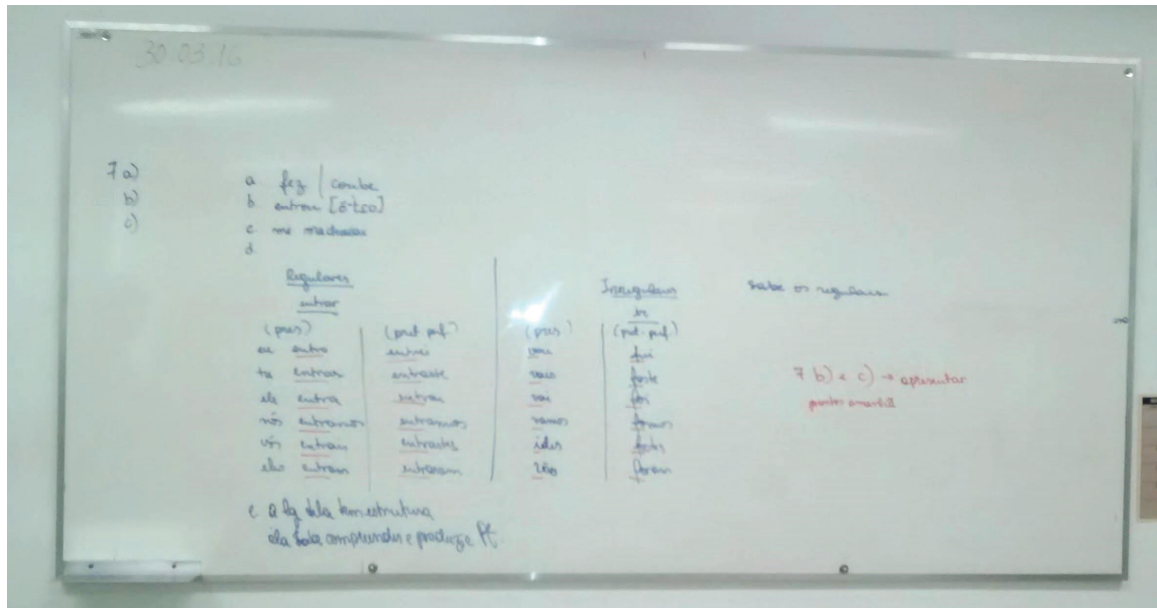 30.03.16
7 a)
b)
c)
a fez | coube
b entrou
c. me
d.
Regulares
entrar
(pres) (pret. perf.)
eu entro entrei
tu entras entraste
ele entra entrou
nós entramos entramos
vós entrais entrastes
eles entram entraram
Irregulares
ir
(pres) (pret. perf.)
vou fui
vais foste
vai foi
vamos fomos
ides fostes
vão foram
sabe os regulares
7 b) e c) → apresentar
e. a lg dela tem estrutura
ela compreende e produz Pt.